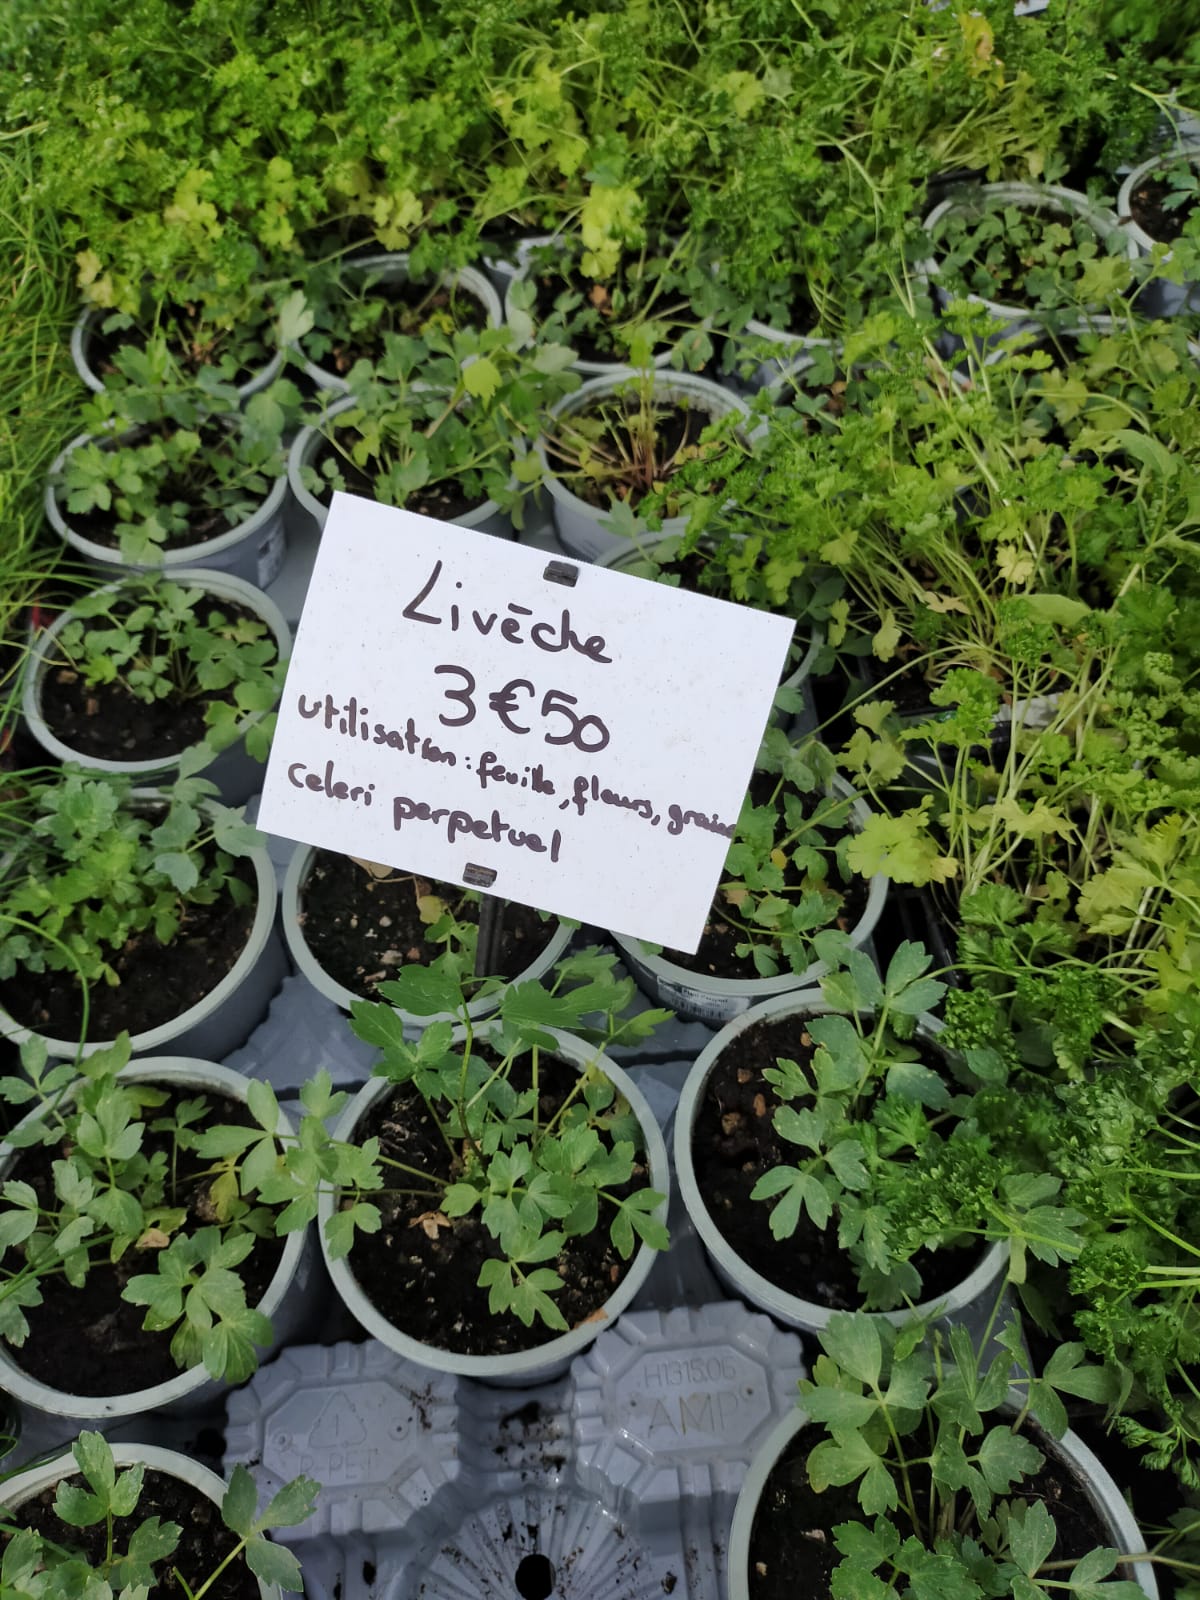 Livēche
3€50
utilisation: feuille, fleurs, graine
celeri perpetuel
H1315.06
AMP
R-PET